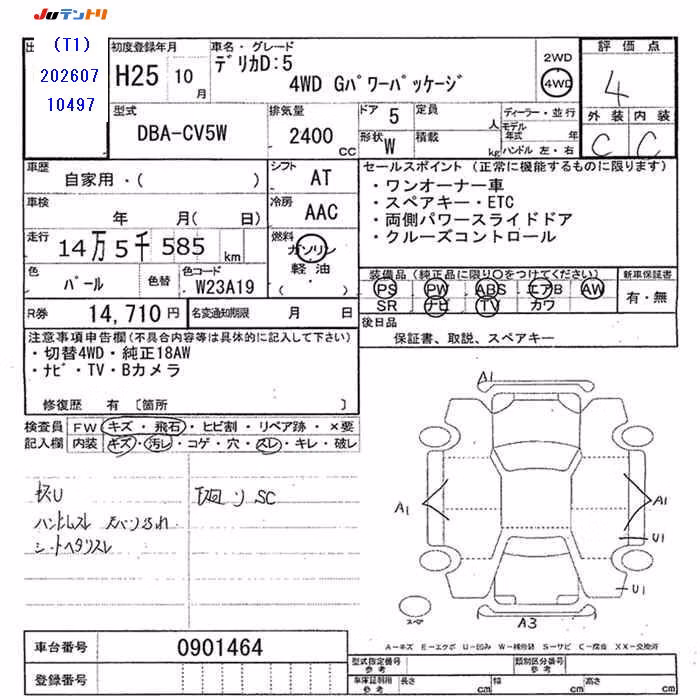 JUテントリ
出
(T1)
202607
10497
初度登録年月
H25 10月
車名・グレード
デリカD:5
4WD Gパワーパッケージ
2WD
4WD
評価点
4
外装 内装
C C
型式
DBA-CV5W
排気量
2400 CC
ドア 5
形状 W
定員 人
積載 kg
ディーラー・並行
モデル年式 年
ハンドル 左・右
車歴
自家用・( )
シフト AT
車検
年 月( 日)
冷房 AAC
走行
14万5千585 km
燃料
ガソリン
軽油
( )
色
パール
色替
色コード
W23A19
セールスポイント (正常に機能するものに限ります)
・ワンオーナー車
・スペアキー・ETC
・両側パワースライドドア
・クルーズコントロール
装備品(純正品に限り○をつけてください)
PS PW ABS エアB AW
SR ナビ TV カワ
新車保証書
有・無
R券 14,710円
名変通知期限 月 日
後日品
保証書、取説、スペアキー
注意事項申告欄(不具合内容等は具体的に記入して下さい)
・切替4WD・純正18AW
・ナビ・TV・Bカメラ
修復歴 有 〔箇所 〕
検査員記入欄
FW キズ・飛石・ヒビ割・リペア跡・×要
内装 キズ・汚レ・コゲ・穴・スレ・キレ・破レ
ハンドルスレ
シートヘタリスレ
SC
A1
A1
A1
U1
U1
A3
スペア
A-キズ E-エクボ U-凹み W-補修跡 S-サビ C-腐食 XX-交換済
車台番号 0901464
登録番号
型式指定番号 参考
類別区分番号 参考
車庫証明用 参考 長さ cm 幅 cm 高さ cm